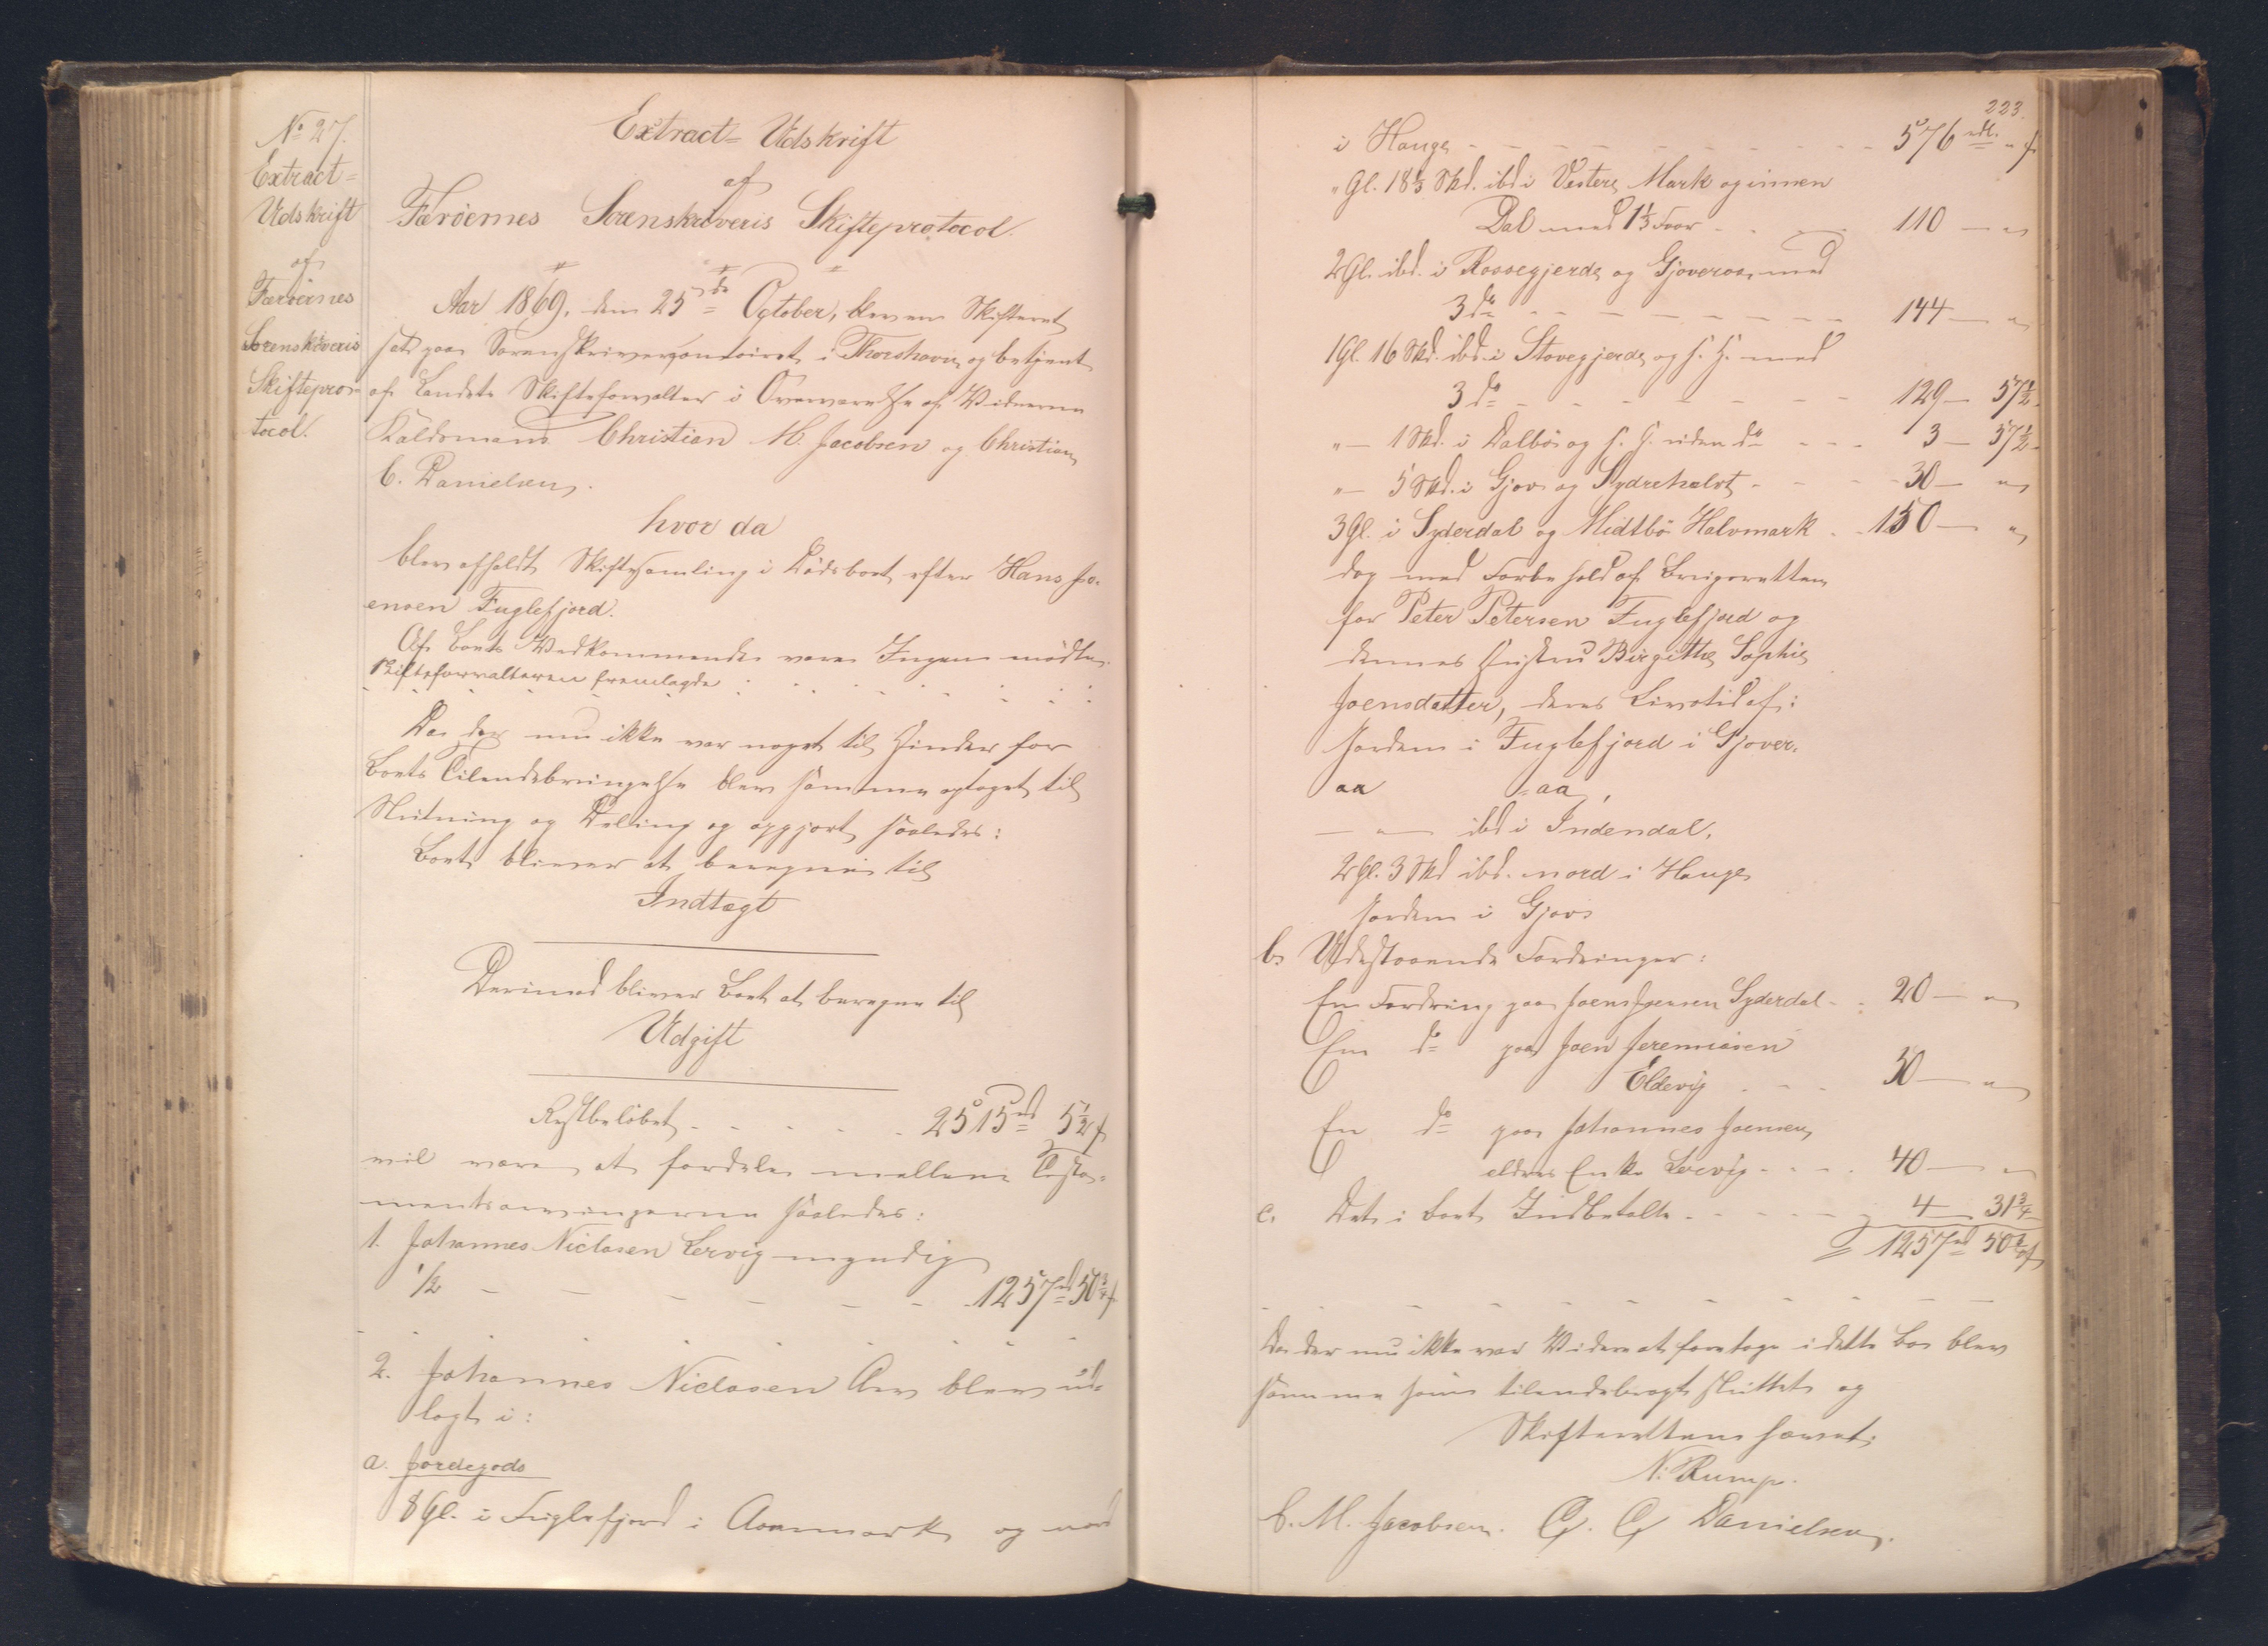 No 27.
Extract=
Udskrift
af
Færöernes
Sorenskriveris
Skiftepro-
tocol.
Extract= Udskrift
af
Færöernes Sorenskriveris Skifteprotocol.
Aar 1869, den 25de October, blev en Skifteret
sat paa Sorenskrivercontoiret i Thorshavn og betjent
af Landets Skifteforvalter i Overværelse af Vidnerne
Kaldsmænd Christian M. Jacobsen og Christian
C. Danielsen.
hvor da
blev afholdt Skiftesamling i Dödsboet efter Hans Jo-
ensen Fuglefjord.
Af Boets Vedkommende vare Ingen mödte.
Skifteforvalteren fremlagde
Da der nu ikke var noget til Hinder for
Boets Tilendebringelse blev samme optaget til
Slutning og Deling og opgjort saaledes:
Boet bliver at beregne til
Indtægt
Derimod bliver Boet at beregne til
Udgift
Restbelöbet - - - - 2515 rd 5 1/2 f
vil være at fordele mellem Testa-
mentsarvingerne saaledes:
1. Johannes Niclasen Lervig myndig
1/2 - - - - - - 1257 rd 50 3/4 f
2. Johannes Niclasen Arv blev ud-
lagt i:
a. Jordegods
8 Gl. i Fuglefjord i Aaremark og nord
223.
i Hauge - - - - - - - - 576 rdl. " f
" Gl. 18 1/3 Skd. ibd i Vestere Mark og innen
Dal med 1 1/3 Foor - - - 110 — "
2 Gl. ibd. i Rossegjerde og Gjoveraae med
3 do - - - - - - - 144 — "
1 Gl. 16 Skd. ibd. i Stovegjerde og s. H. med
3 do - - - - - - - 129 — 57 1/2
" — 1 Skd. i Dalbö og s. H. uden do - - - 3 — 57 1/2
" — 5 Skd. i Gjov og Sydrehalvt - - - 30 — "
3 Gl. i Syderdal og Midtbö Halvmark - - 150 — "
dog med Forbehold af Brugsretten
for Peter Petersen Fuglefjord og
dennes Hustru Birgitte Sophie
Joensdatter, deres Livstid af:
Jorden i Fuglefjord i Gjover-
aa aa,
— " — ibd i Indendal,
2 Gl. 3 Skd ibd. nord i Hauge
Jorden i Gjov
b. Udestaaende Fordringer:
En Fordring paa Joen Joensen Syderdal - - 20 — "
En do paa Joen Jeremiasen
Eldevig - - - 30 — "
En do paa Johannes Joensen
eldres Enke Lervig - - - 40 — "
c. Det i Boet Indbetalte - - - - - 4 — 31 3/4
1257 rd 50 3/4 f
Da der nu ikke var Videre at foretage i dette Bo blev
samme som tilendebragt sluttet og
Skifteretten hævet.
N. Rump.
C. M. Jacobsen. C. C. Danielsen.